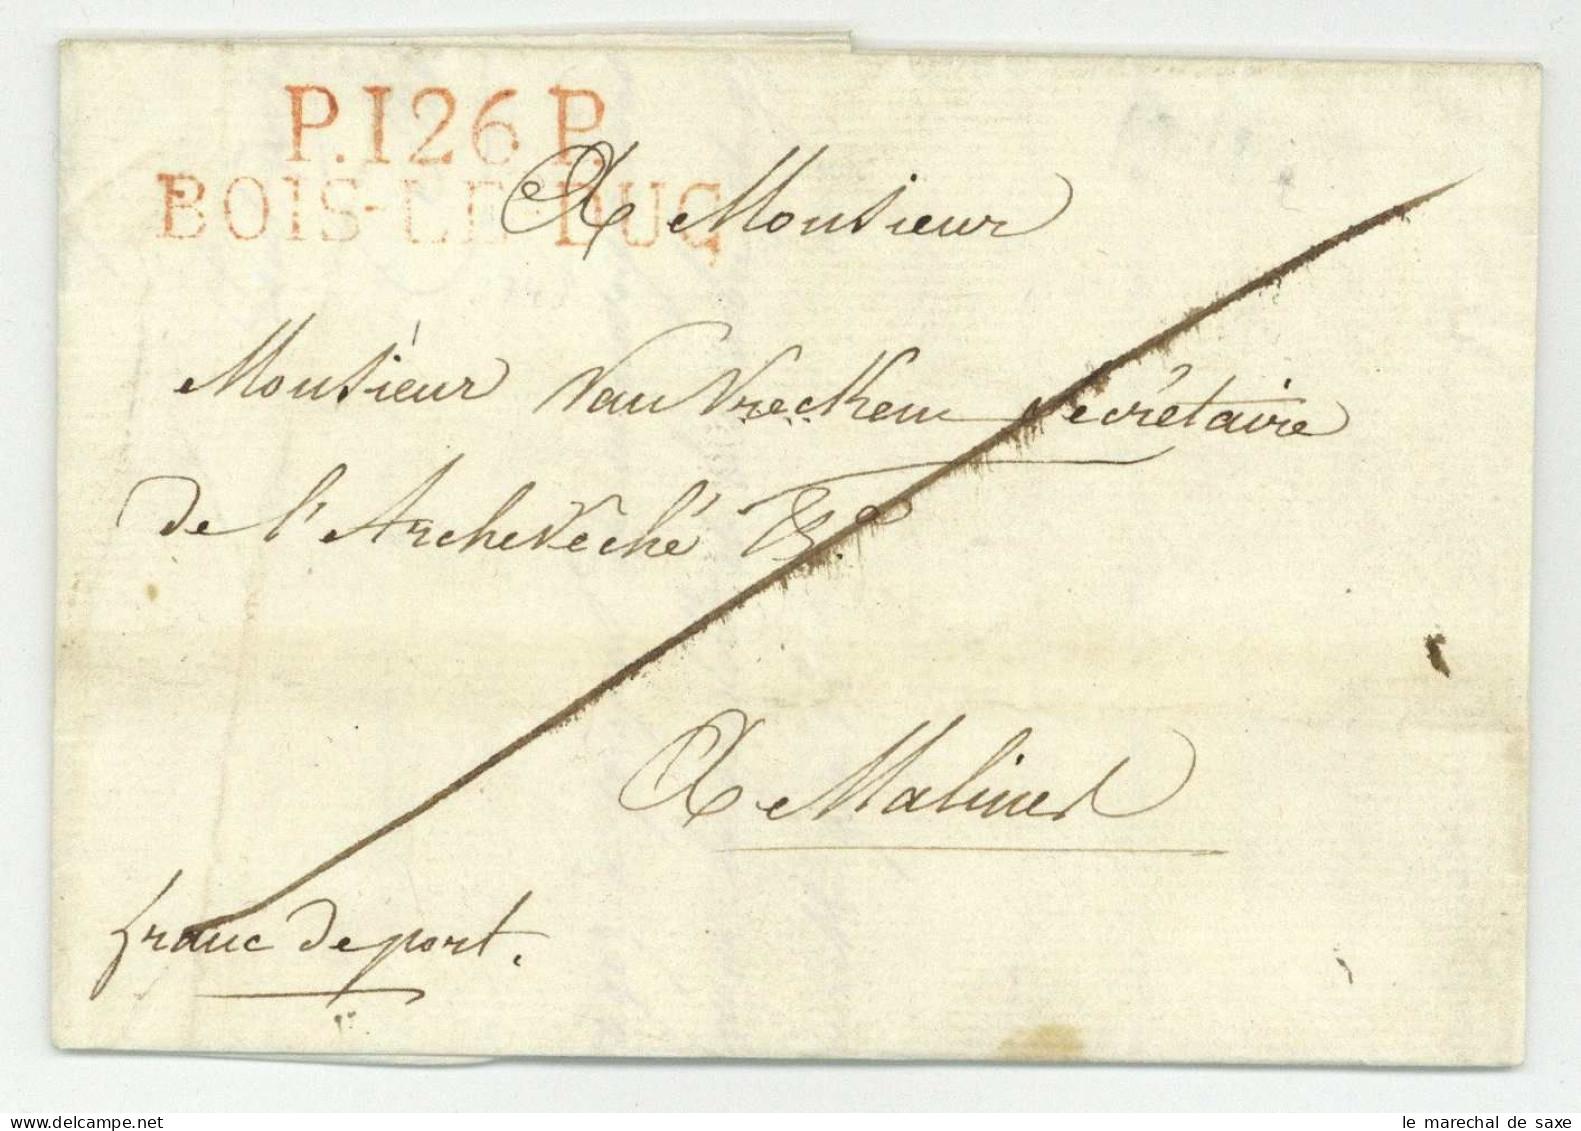 P.126.P.
BOIS-LE-DUC
A Monsieur
Monsieur Van Vreckem Secrétaire
de l'Archevêché &c.
A Malines
franc de port.
le marechal de saxe
DELCAMPE.NET